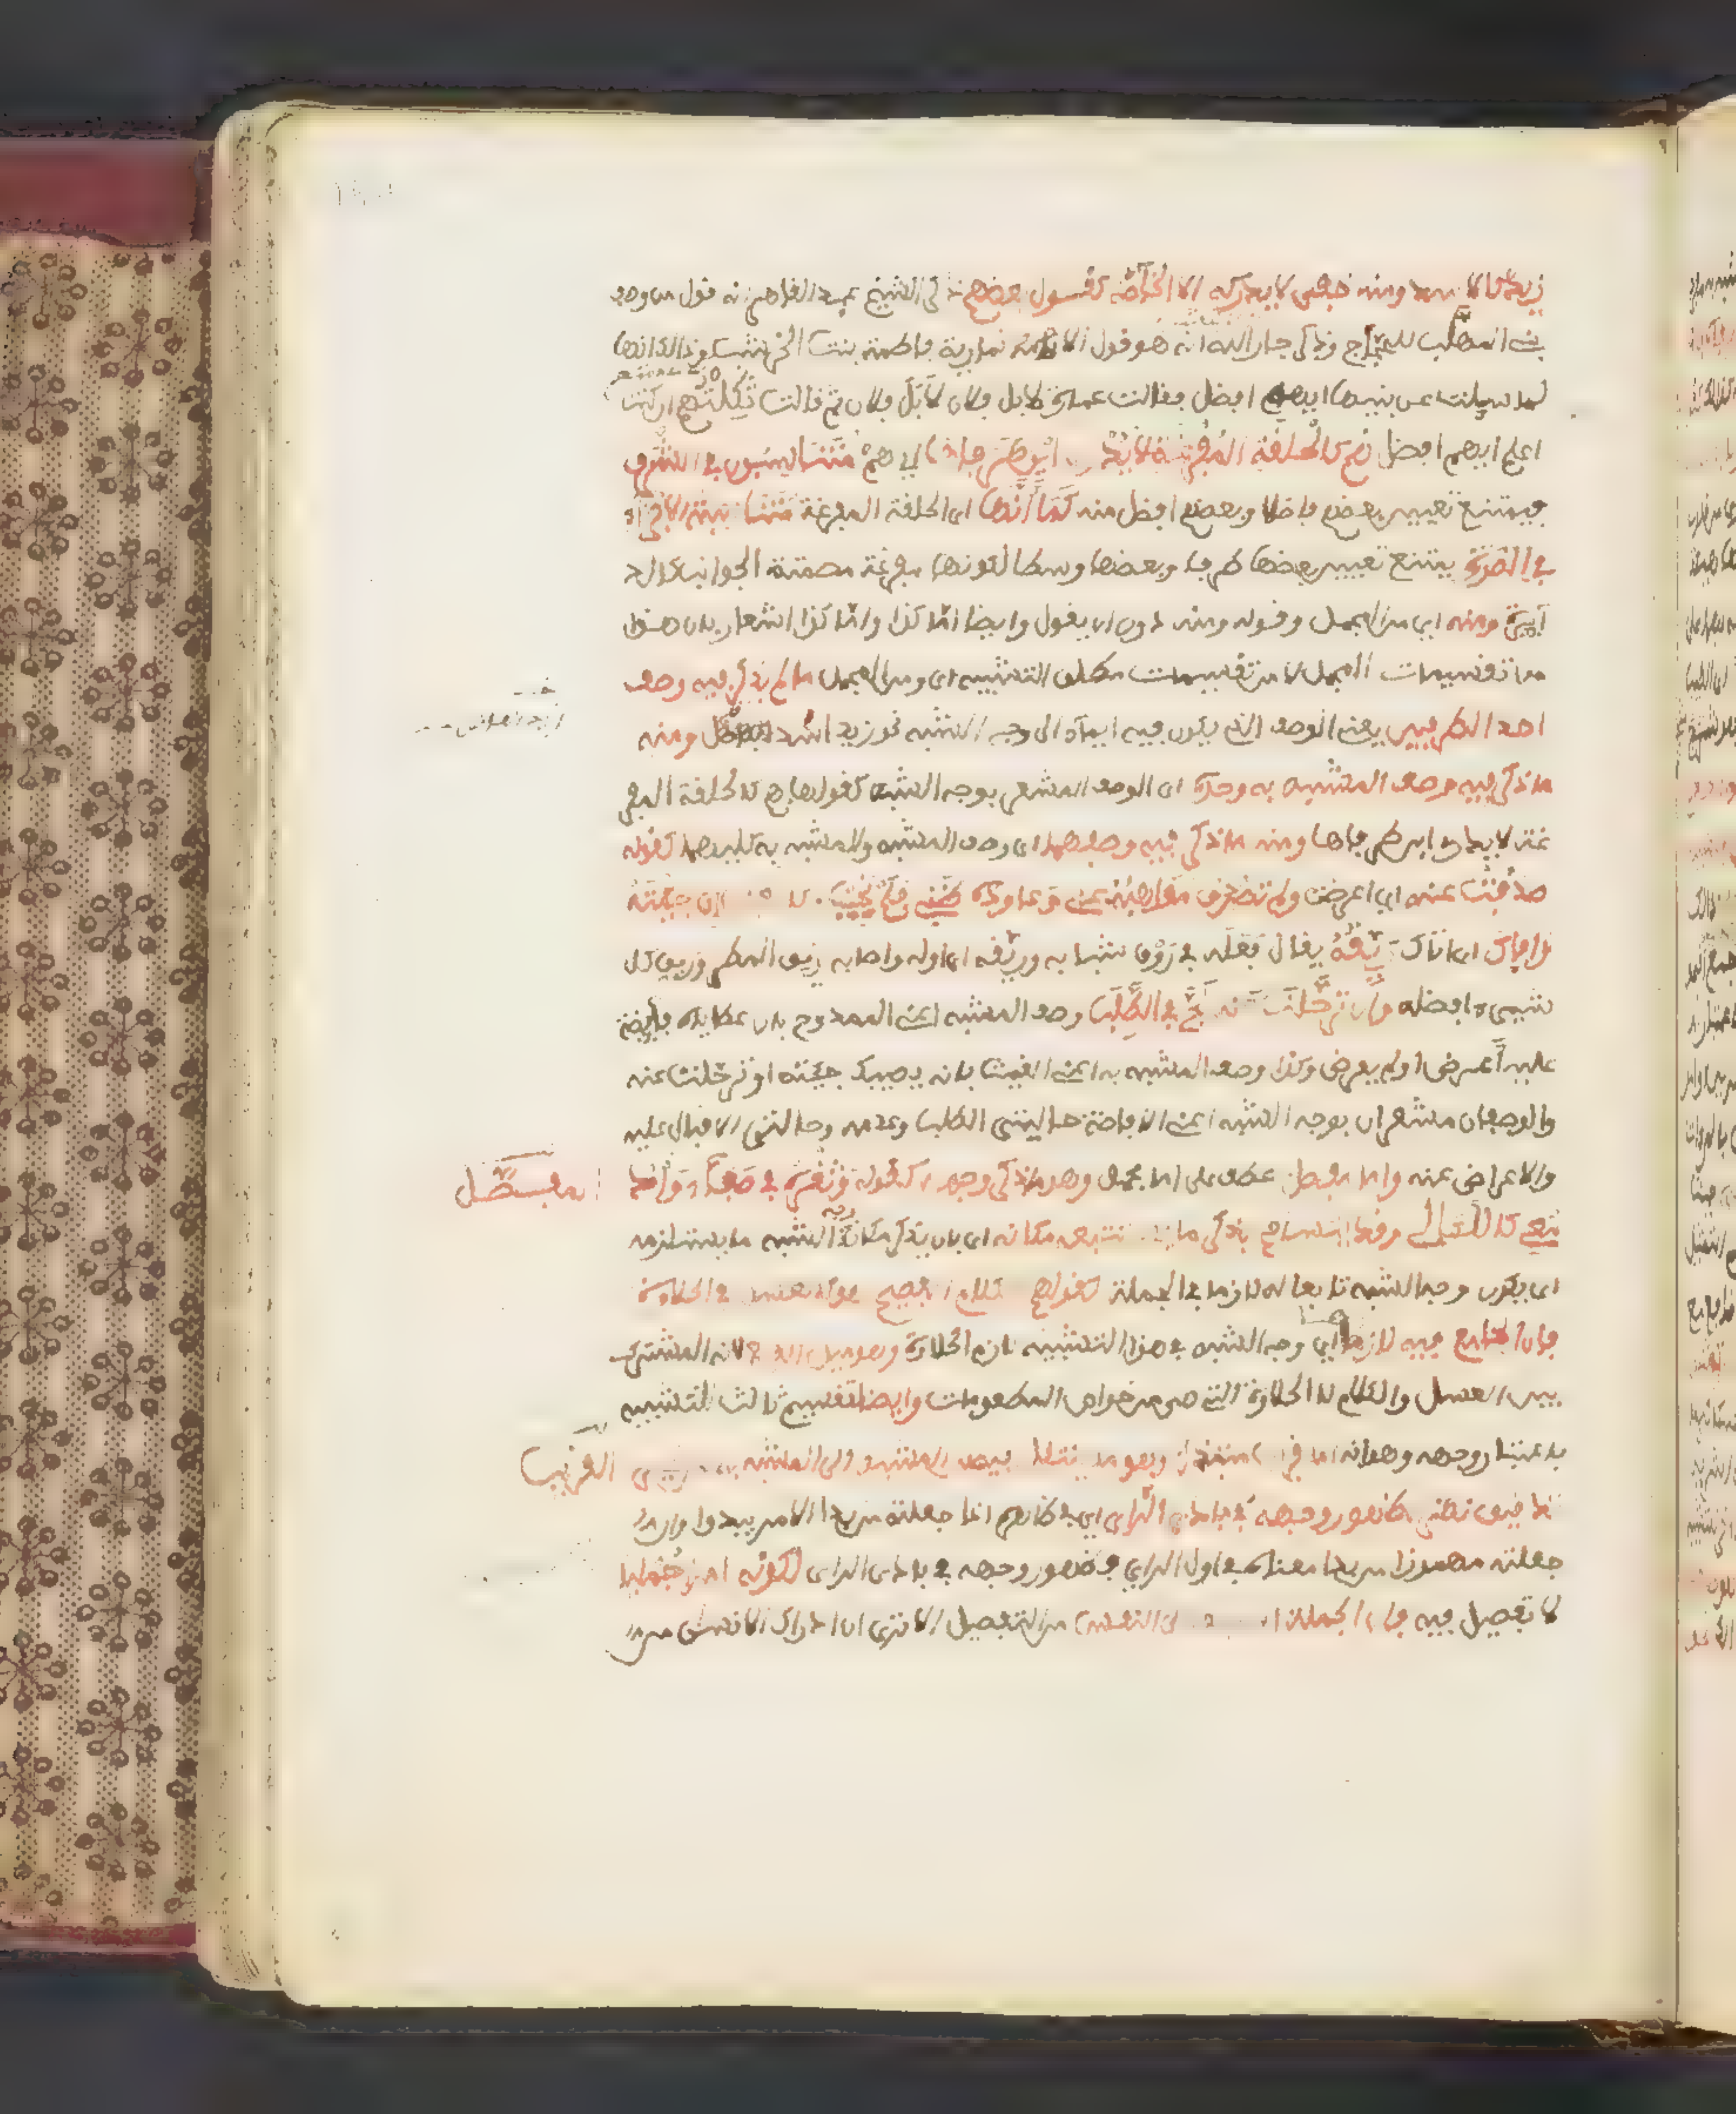 زيد كالاسد ومنه خفى لا يدركه الا الخاصة كقول بعضهم ذكر الشيخ عبد القاهر انه قول من وصف
بنى المهلب للحجاج وذكر جار الله انه هو قول الانمارية فاطمة بنت الخرشب وذالك انها
لما سيلت عن بنيها ايهم افضل فقالت عمارة لا بل فلان لا بل فلان ثم قالت ثكلتهم ان كنت
اعلم ايهم افضل هم كالحلقة المفرغة لا يدرى اين طرفاها اي هم متناسبون في الشرف
فيمتنع تعيين بعضهم فاضلا وبعضهم افضل منه كما انها اى الحلقة المفرغة متناسبة الاجزاء
في الصورة يمتنع تعيين بعضها طرفا وبعضها وسطا لكونها مفرغة مصمتة الجوانب كالد
ايرة ومنه اي من المجمل وقوله ومنه دون ان يقول وايضا اما كذا واما كذا اشعار بان هذا
من تقسيمات المجمل لا من تقسيمات مطلق التشبيه اى ومن المجمل ما لم يذكر فيه وصف
احد الطرفين يعنى الوصف الذى يكون فيه ايماء الى وجه الشبه نحو زيد اسد ومنه
ما ذكر فيه وصف المشبه به وحده اى الوصف المشعر بوجه الشبه كقولها هم كالحلقة المفر
غة لا يدرى اين طرفاها ومنه ما ذكر فيه وصفهما اى وصف المشبه والمشبه به كليهما كقوله
صدفت عنه اي اعرضت ولم تصدف مواهبه عنى وعاوده ظنى فلم يخب كالغيث ان جئته
وافاك اى اتاك ريقه يقال فعله فى روق شبابه وريقه اى اوله واصابه ريق المطر وريق كل
شيىء افضله وان ترحلت عنه لج في الطلب وصف المشبه اعنى الممدوح بان عطاياه فايضة
عليه اعرض او لم يعرض وكذا وصف المشبه به اعنى الغيث بانه يصيبك جئته او ترحلت عنه
والوصفان مشعران بوجه الشبه اعنى الافاضة حالتى الطلب وعدمه وحالتى الاقبال عليه
والاعراض عنه واما مفصل عطف على اما مجمل وهو ما ذكر وجهه كقوله وثغره فى صفاء وادمعى
كاللئالى وقد يتسامح بذكر ما يستتبعه مكانه اى بان يذكر مكان وجه الشبه ما يستلزمه
اى يكون وجه الشبه تابعا له لازما فى الجملة كقولهم للكلام الفصيح هو كالعسل فى الحلاوة
فان الجامع فيه لازمها اي وجه الشبه فى هذا التشبيه لازم الحلاوة وهو ميل الطبع لانه المشترك
بين العسل والكلام لا الحلاوة التى هى من خواص المطعومات وايضا تقسيم ثالث للتشبيه
باعتبار وجهه وهو انه اما قريب مبتذل وهو ما ينتقل فيه من المشبه الى المشبه به من غير
تدقيق نظر لظهور وجهه فى بادى الراى اي فى ظاهره اذا جعلته من بدا الامر يبدوا وان
جعلته مهموزا من بدا معناه فى اول الراي وظهور وجهه فى بادى الراى لكونه امرا جمليا
لا تفصيل فيه فان الجملة اسبق الى النفس من التفصيل الا ترى ان ادراك الانسان من
مفصل
الغريب